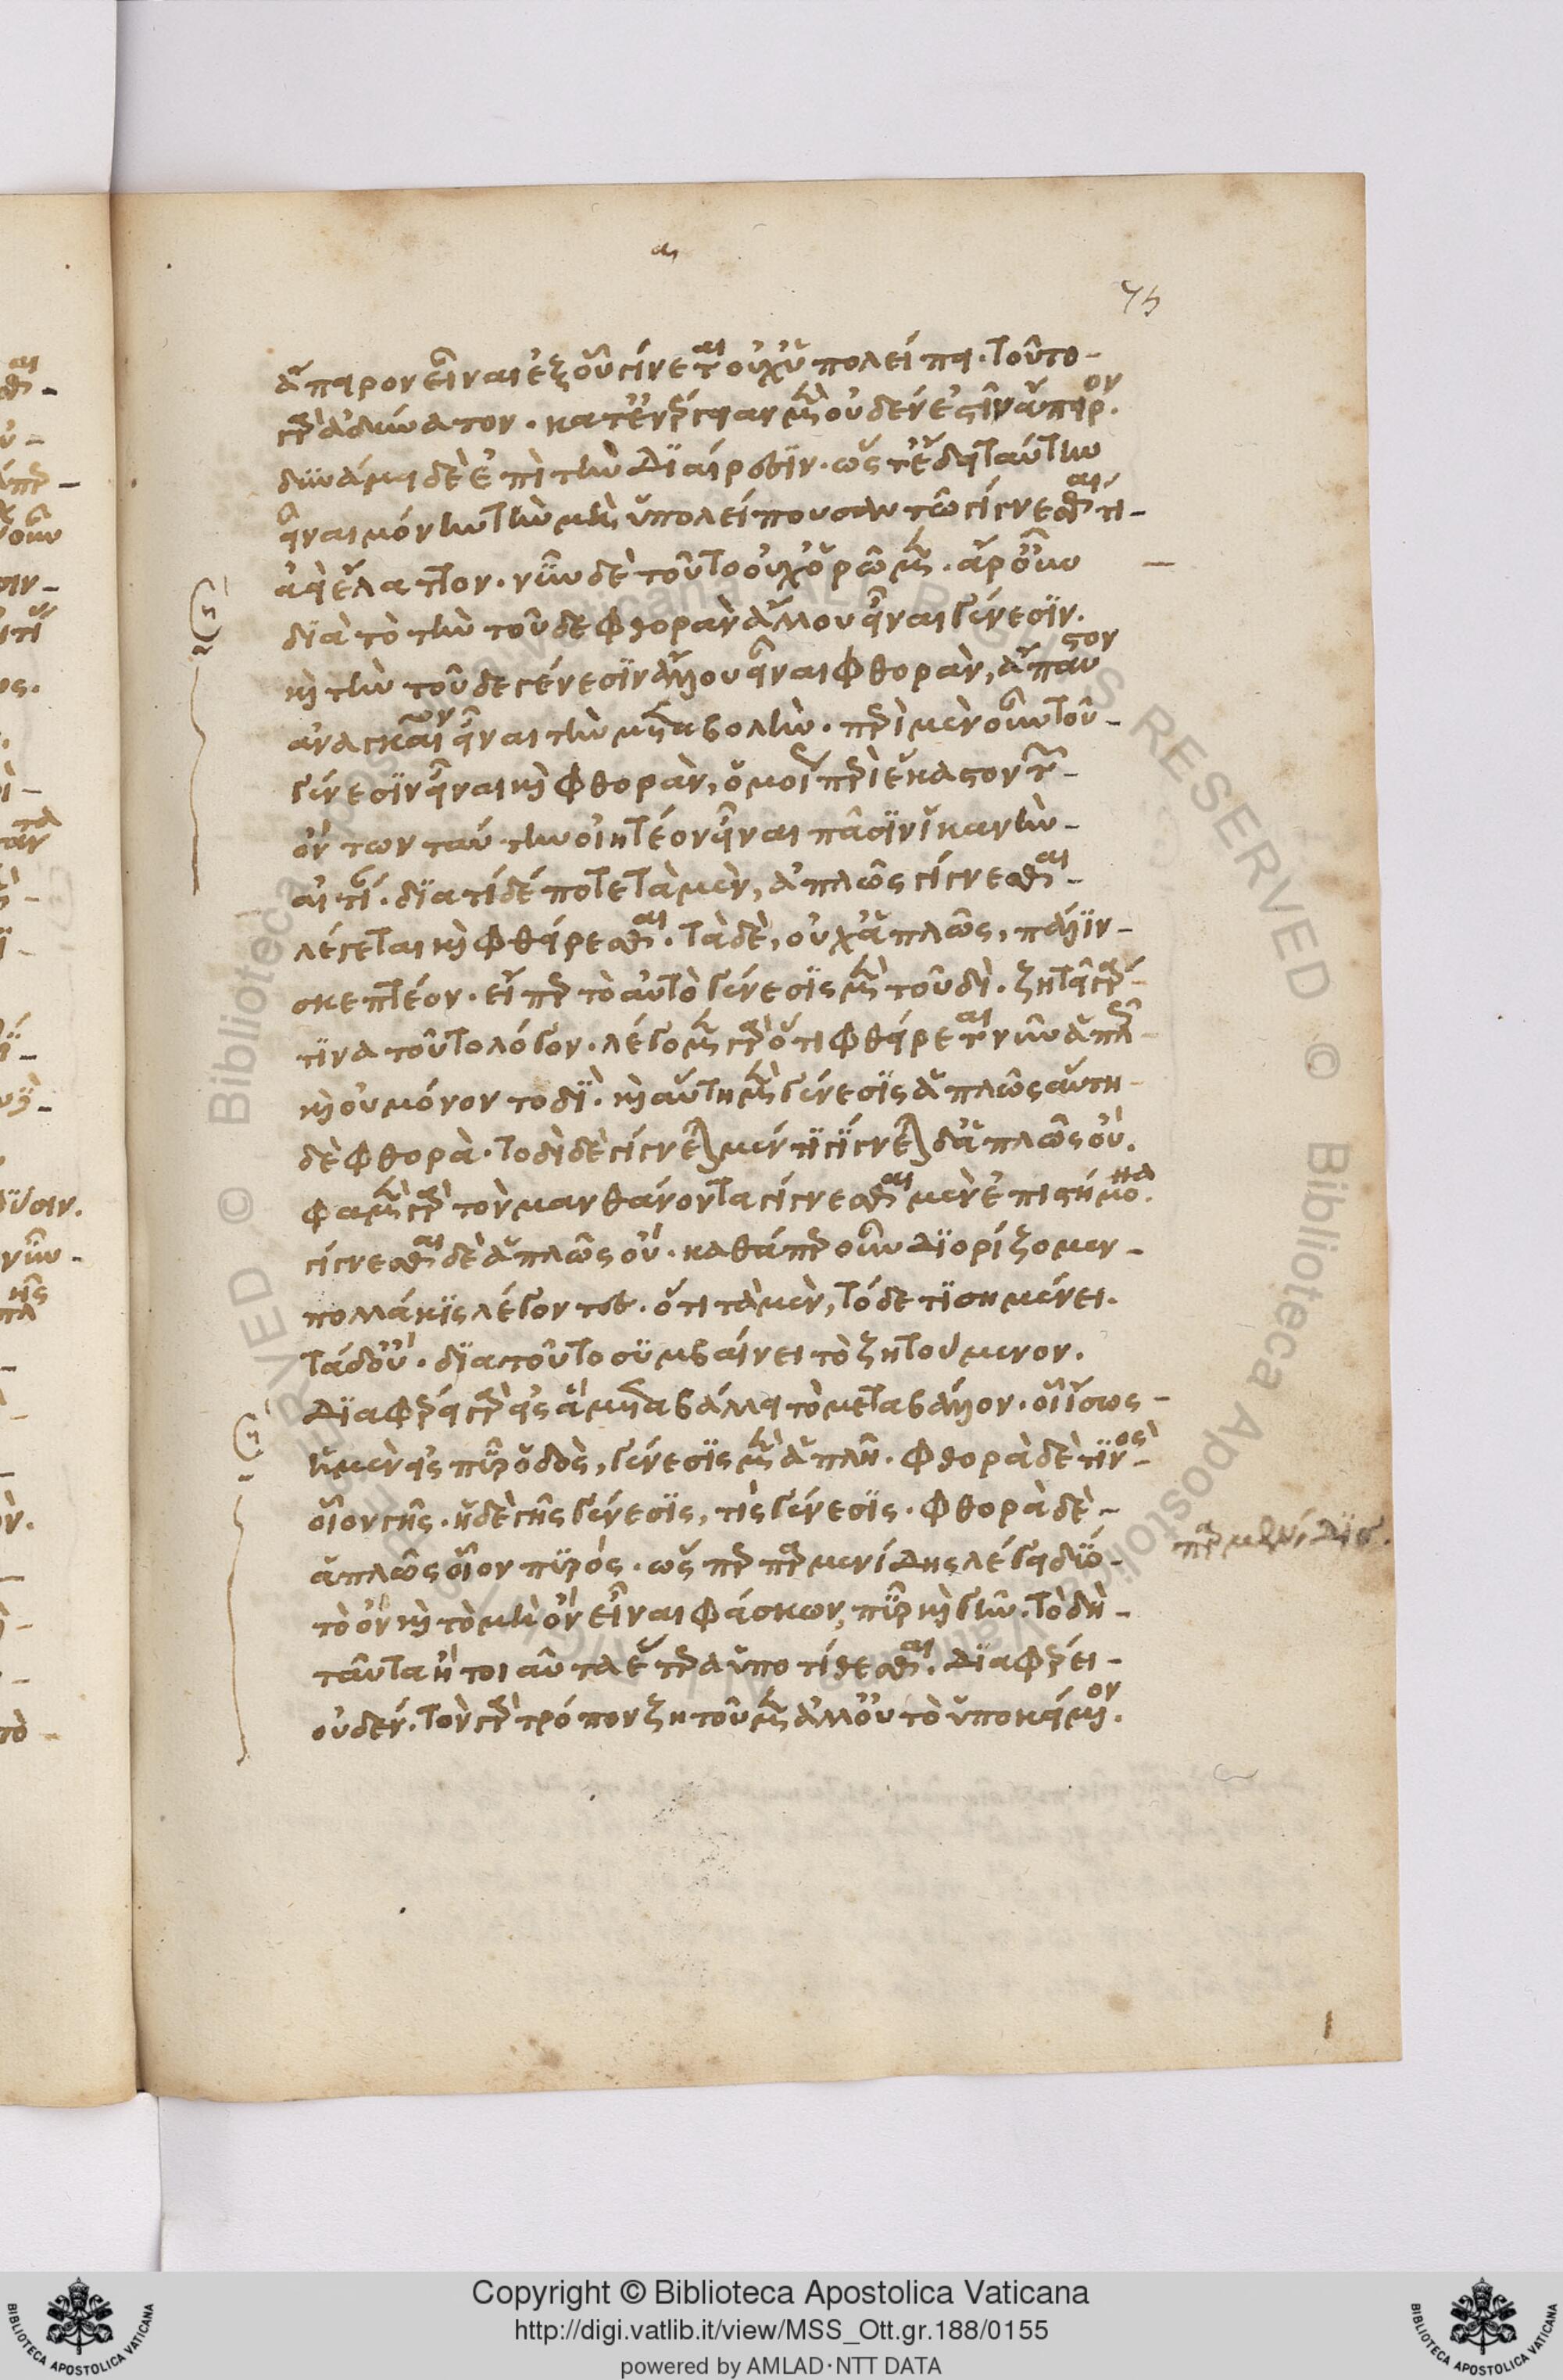 α
75
ἄπειρον εἶναι ἐξ οὗ γίνεται οὐχ ὑπολείπει. τοῦτο
γὰρ ἀδύνατον. κατ' ἐνέργειαν μὲν οὐδέν ἐστιν ἄπειρον.
δυνάμει δὲ ἐπὶ τὴν διαίρεσιν. ὥστ' ἔδει ταύτην
εἶναι μόνην τὴν μὴ ὑπολείπουσαν τῷ γίγνεσθαί τι
ἀεὶ ἔλαττον. νῦν δὲ τοῦτο οὐχ ὁρῶμεν. ἆρ' οὖν
διὰ τὸ τὴν τοῦδε φθορὰν ἄλλου εἶναι γένεσιν.
καὶ τὴν τοῦδε γένεσιν ἄλλου εἶναι φθορὰν, ἄπαυστον
ἀναγκαῖον εἶναι τὴν μεταβολήν. περὶ μὲν οὖν τοῦ
γένεσιν εἶναι καὶ φθορὰν, ὁμοίως περὶ ἕκαστον τῶν
ὄντων ταύτην οἰητέον εἶναι πᾶσιν ἱκανὴν
αἰτίαν. διὰ τί δέ ποτε τὰ μὲν, ἁπλῶς γίγνεσθαι
λέγεται καὶ φθείρεσθαι. τὰ δὲ, οὐχ ἁπλῶς, πάλιν
σκεπτέον. εἴπερ τὸ αὐτὸ γένεσις μὲν τοῦδι. ζητεῖ γάρ
τινα τοῦτο λόγον. λέγομεν γὰρ ὅτι φθείρεται νῦν ἁπλῶς
καὶ οὐ μόνον τοδί. καὶ αὕτη μὲν γένεσις ἁπλῶς αὕτη
δὲ φθορά. τοδὶ δὲ γίγνεται μέν τι γίγνεται δ' ἁπλῶς οὔ.
φαμὲν γὰρ τὸν μανθάνοντα γίγνεσθαι μὲν ἐπιστήμονα.
γίγνεσθαι δὲ ἁπλῶς οὔ. καθάπερ οὖν διορίζομεν
πολλάκις λέγοντες. ὅτι τὰ μὲν, τόδε τι σημαίνει.
τὰ δ' οὔ. διὰ τοῦτο συμβαίνει τὸ ζητούμενον.
διαφέρει γὰρ εἰς ἃ μεταβάλλει τὸ μεταβάλλον. οἷον ἴσως
ἡ μὲν εἰς πῦρ ὁδὸς, γένεσις μὲν ἁπλῆ. φθορὰ δὲ τινὸς
οἷον γῆς. ἡ δὲ γῆς γένεσις, τὶς γένεσις. φθορὰ δὲ
ἁπλῶς οἷον πυρός. ὥσπερ παρμενίδης λέγει δύο
τὸ ὂν καὶ τὸ μὴ ὂν εἶναι φάσκων, πῦρ καὶ γῆν. τὸ δὴ
ταῦτα ἤτοιαῦτα ἕτερα ὑποτίθεσθαι. διαφέρει
οὐδέν. τὸν γὰρ τρόπον ζητοῦμεν ἀλλ' οὐ τὸ ὑποκείμενον.
παρμενίδης.
Copyright © Biblioteca Apostolica Vaticana
http://digi.vatlib.it/view/MSS_Ott.gr.188/0155
powered by AMLAD·NTT DATA